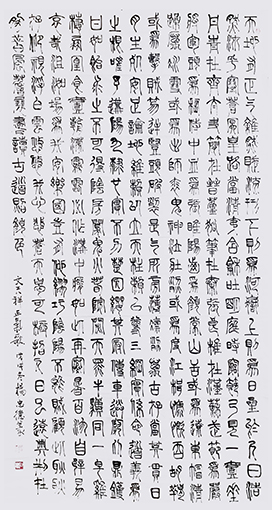 天地有正氣雜然賦流形下則為河嶽上則為日星於人曰浩
然沛乎塞蒼冥皇路當清夷含和吐明庭時窮節乃見一一垂
丹青在齊太史簡在晉董狐筆在秦張良椎在漢蘇武節為嚴
將軍頭為嵇侍中血為張睢陽齒為顏常山舌或為遼東帽清
操厲冰雪或為出師表鬼神泣壯烈或為渡江楫慷慨吞胡羯
或為擊賊笏逆豎頭破裂是氣所磅礴凜烈萬古存當其貫日
月生死安足論地維賴以立天柱賴以尊三綱實繫命道義為
之根嗟予遘陽九隸也實不力楚囚纓其冠傳車送窮北鼎鑊
甘如飴求之不可得陰房闃鬼火春院閟天黑牛驥同一皂雞
棲鳳凰食一朝蒙霧露分作溝中瘠如此再寒暑百沴自辟易
哀哉沮洳場為我安樂國豈有他繆巧陰陽不能賊顧此耿耿
在仰視浮雲白悠悠我心悲蒼天曷有極哲人日已遠典刑在
夙昔風簷展書讀古道照顏色 文天祥正氣歌